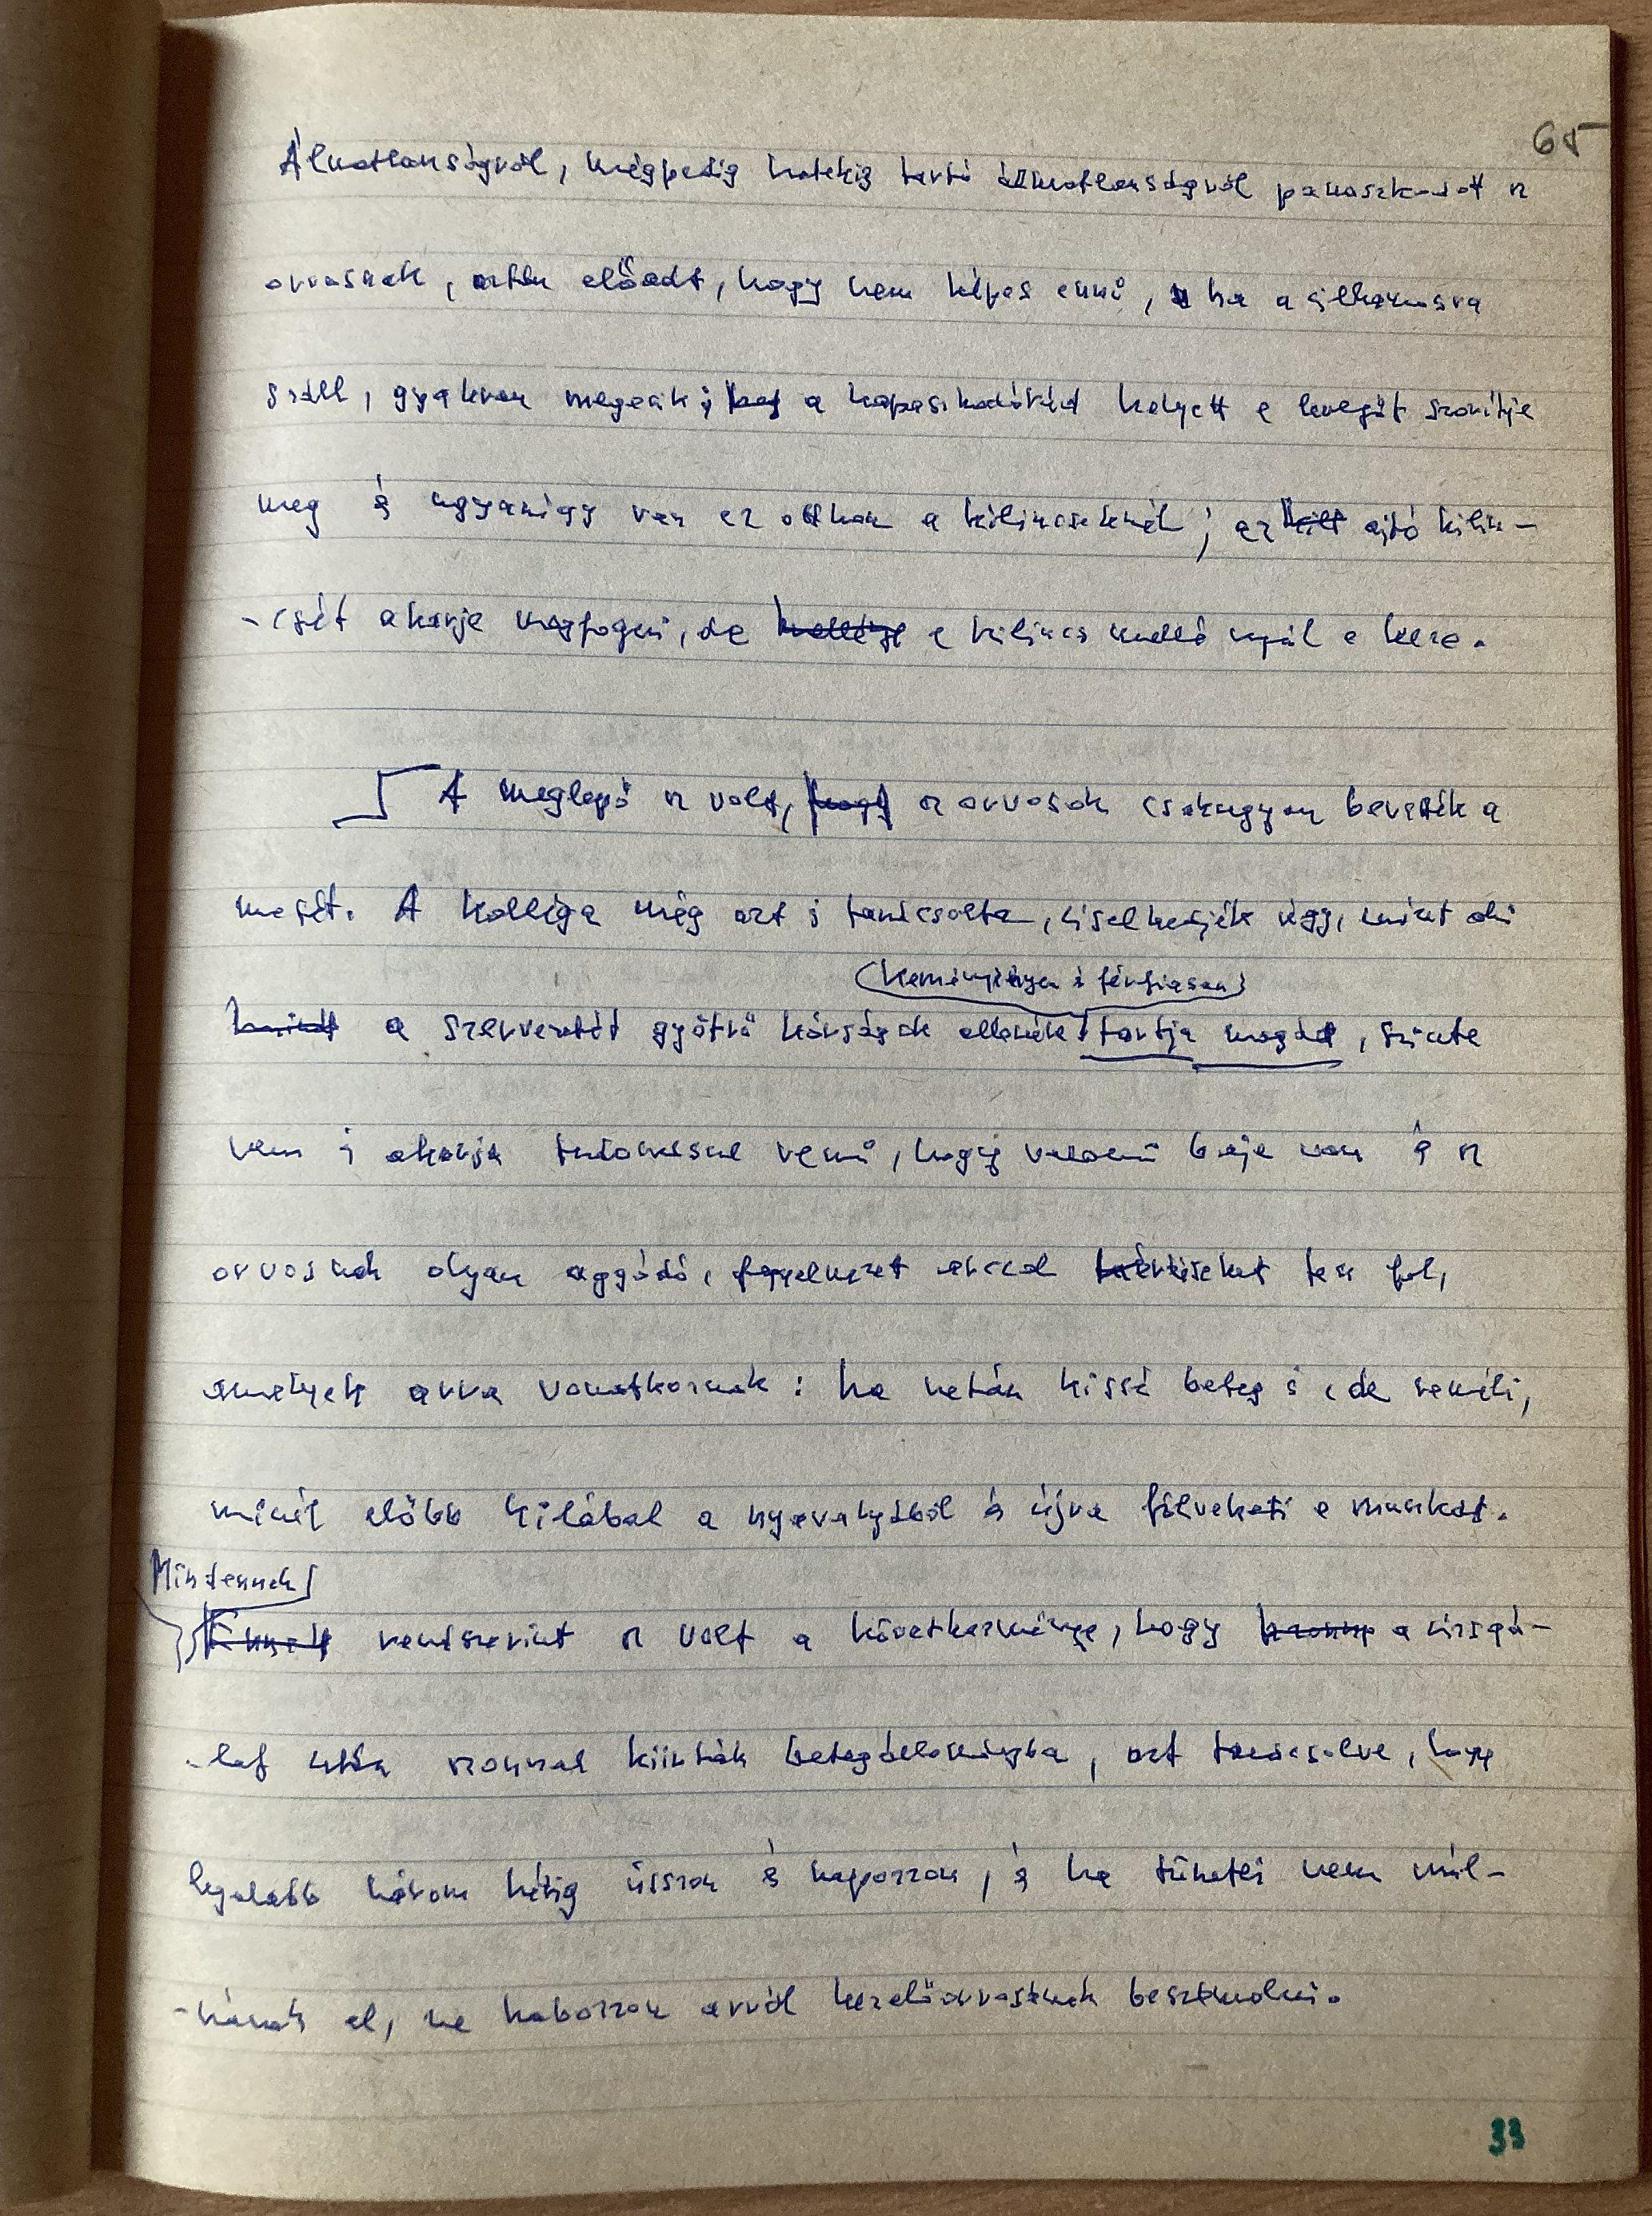 65
Álmatlanságról, mégpedig hetekig tartó álmatlanságról panaszkodott az
orvosnak, aztán előadt, hogy nem képes enni, ha a villamosra
száll, gyakran megesik; ~~hog~~ a kapaszkodórúd helyett a levegőt szorítja
meg és ugyanígy van ez otthon a kilincseknél; az ~~kili~~ ajtó kilin-
-csét akarja megfogni, de ~~mellége~~ a kilincs mellé nyúl a keze.
A meglepő az volt, ~~hogy~~ az orvosok csakugyan bevették a
mesét. A kolléga még azt is tanácsolta, viselkedjék úgy, mint aki
(keményen és férfiasan)
~~mint~~ a szervezetét gyötrő kórságok ellenére tartja magát, szinte
nem is akarja tudomásul venni, hogy valami baja van és az
orvosnak olyan aggódó, arccal kérdéseket tesz fel,
amelyek arra vonatkoznak: ha netán kissé beteg is, de reméli,
minél előbb kilábal a nyavalyából és újra fölveheti a munkát.
Mindennek
rendszerint az volt a következménye, hogy a vizsgá-
-lat után azonnal kiírták betegállományba, azt tanácsolva, hogy
legalább három hétig ússzon és napozzon, és ha tünetei nem múl-
-nának el, ne habozzon arról kezelőorvosának beszámolni.
33